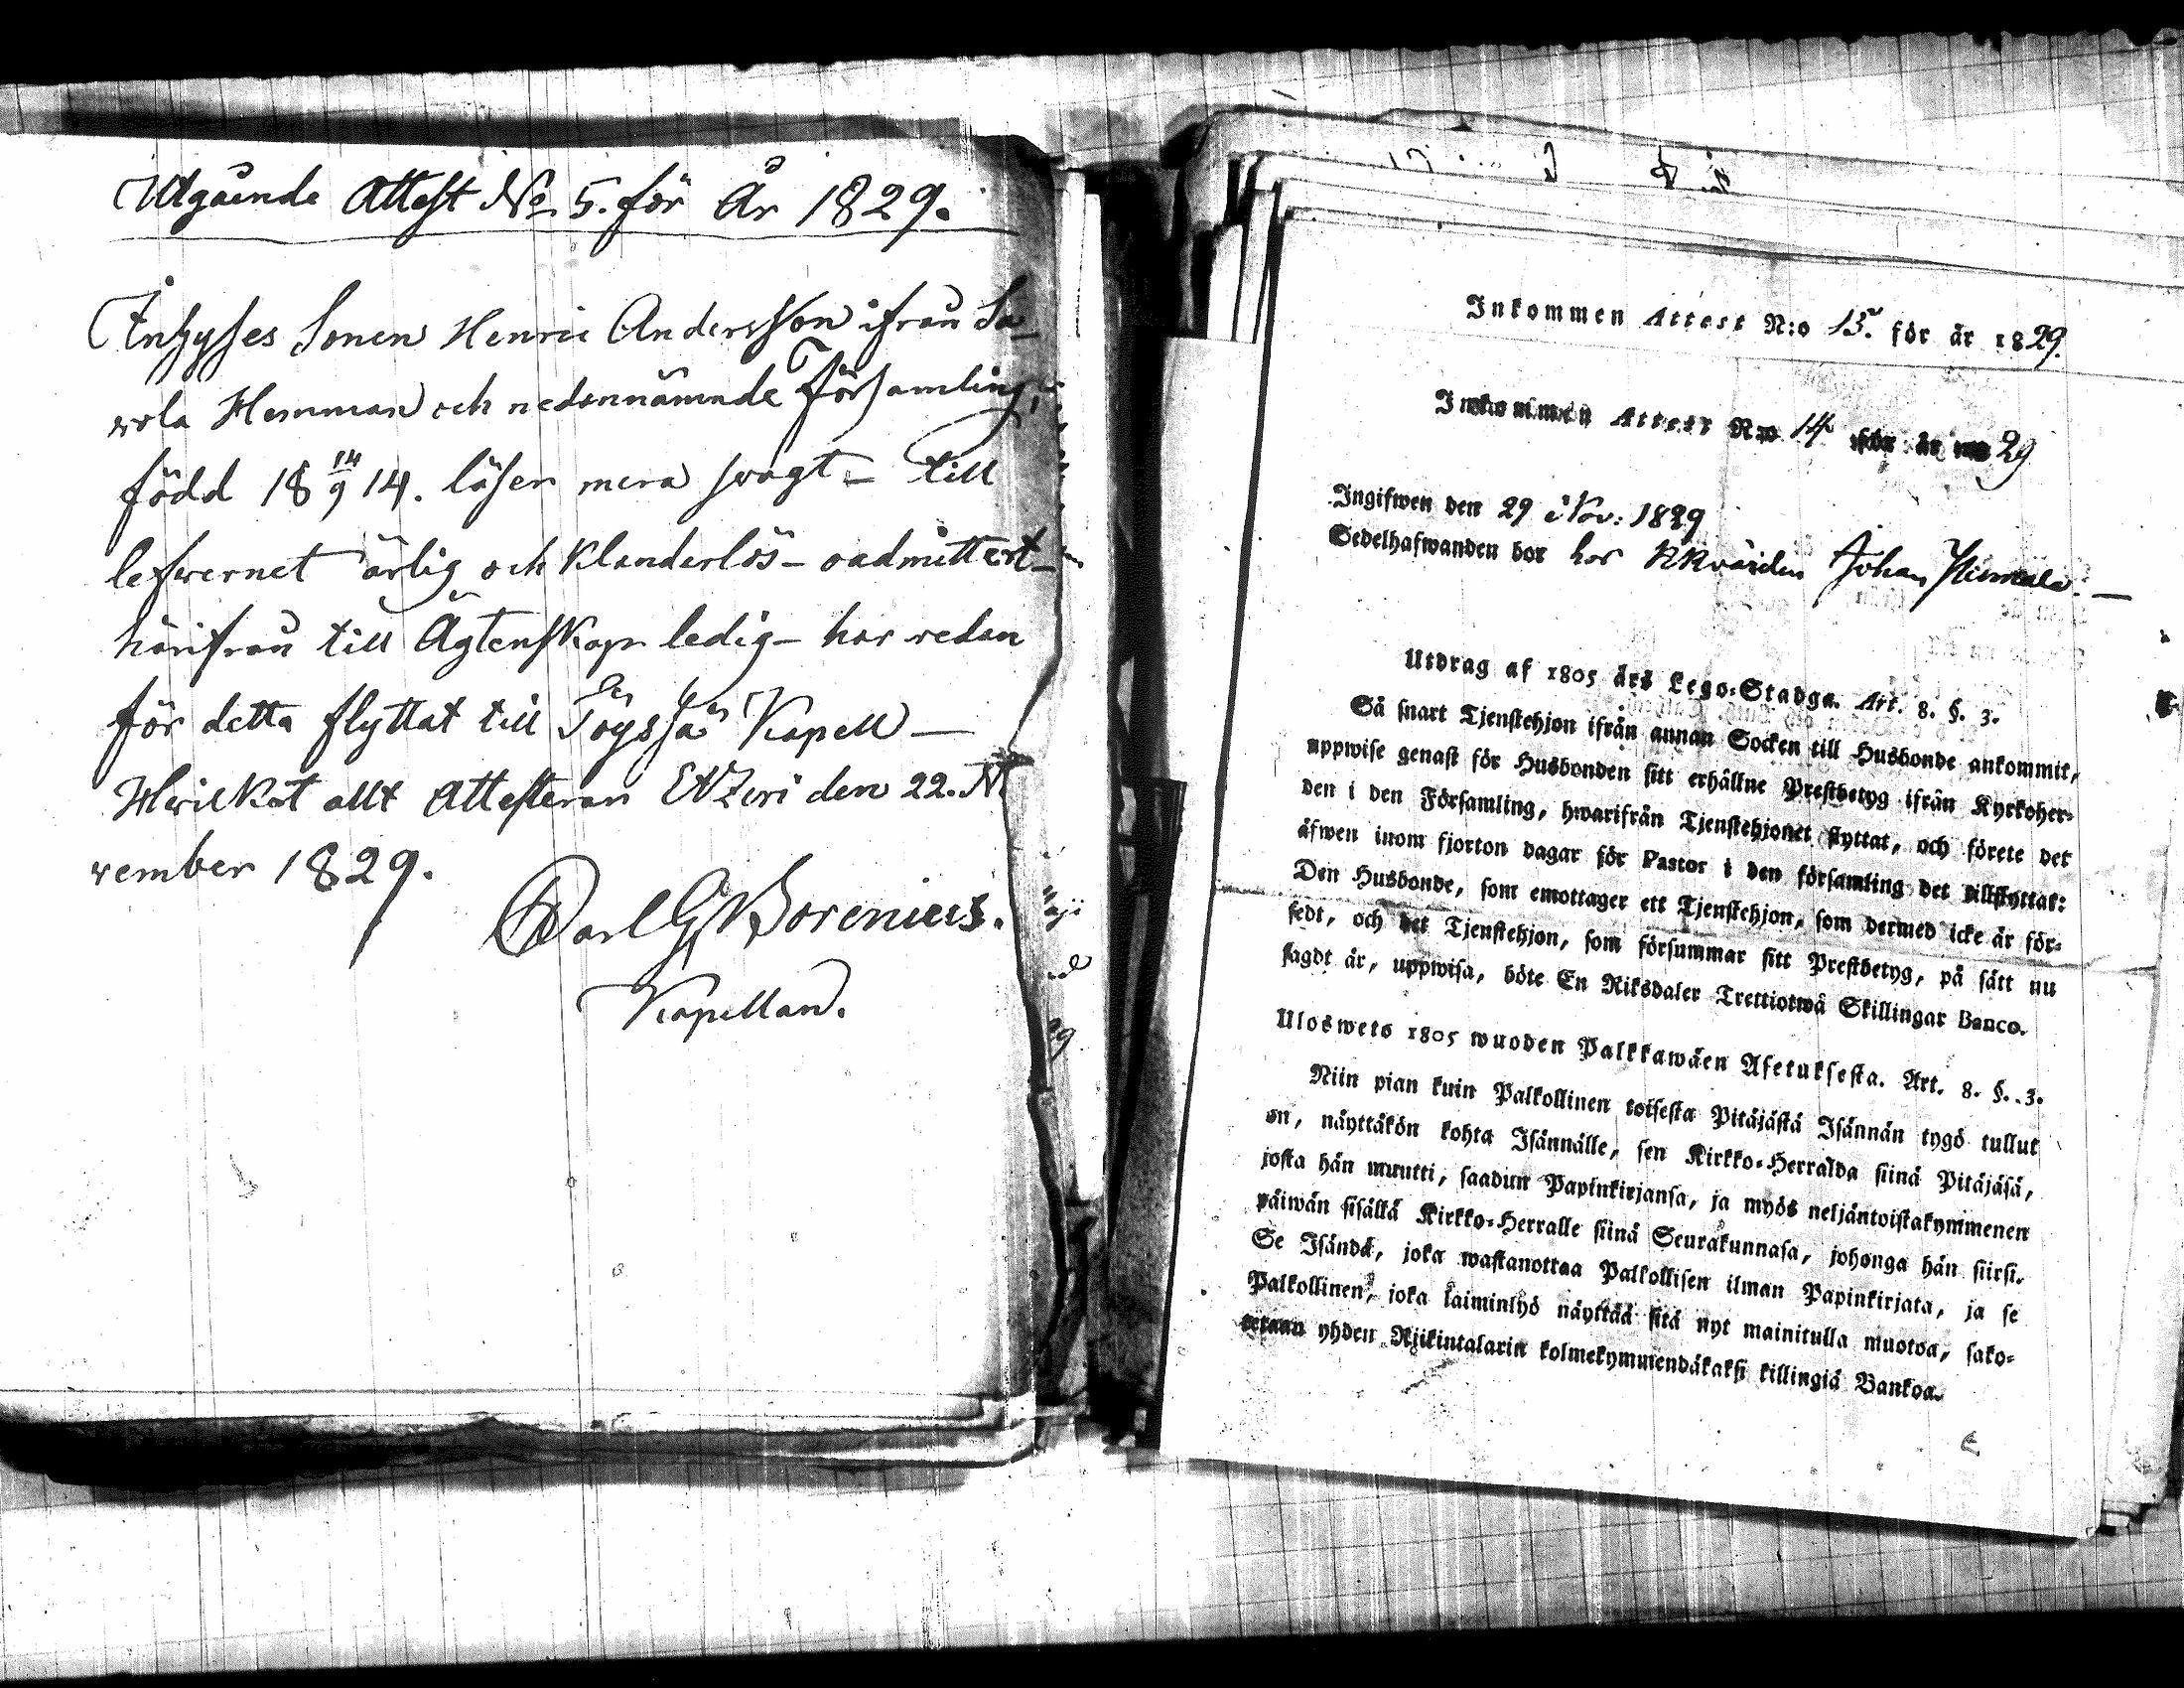 Utgående Attest No. 5. för År 1829.
Inhyses Sonen Henric Andersson ifrån Sa-
wola Hemman och nedannämnde Församling,
född 18 14/9 14. läser mera swagt - till
lefwernet ärlig och Klanderlös - oadmittert -
härifrån till Ägtenskap ledig - har redan
för detta flyttat till Töysä Kapell -
Hwilket allt Attesteras Etzeri den 22. No
vember 1829.
Carl G Borenius.
Kapellan.
Inkommen Attest N:o 13. för år 1829.
Inkommen Attest N:o 14 för år 29
Ingifwen den 29 Nov: 1829
Sedelhafwanden bor hos Johan
Utdrag af 1805 års Lego-Stadga. Art. 8. §. 3.
Så snart Tjenstehjon ifrån annan Socken till Husbonde ankommit,
uppwise genast för Husbonden sitt erhållne Prestbetyg ifrån Kyrkoher-
den i den Församling, hwarifrån Tjenstehjonet flyttat, och förete det
äfwen inom fjorton dagar för Pastor i den församling det tillflyttat:
Den Husbonde, som emottager ett Tjenstehjon, som dermed icke är för-
sedt, och det Tjenstehjon, som försummar sitt Prestbetyg, på sätt nu
sagdt är, uppwisa, böte En Riksdaler Trettiotwå Skillingar Banco.
Uloswets 1805 wuoden Palkkawäen Asetuksesta. Art. 8. §. 3.
Niin pian kuin Palkollinen toisesta Pitäjästä Isännän tygö tullut
on, näyttäkön kohta Isännälle, sen Kirkko-Herralda siinä Pitäjäsä,
josta hän muutti, saadun Papinkirjansa, ja myös neljäntoistakymmenen
päiwän sisällä Kirkko-Herralle siinä Seurakunnasa, johonga hän siirsi.
Se Isändä, joka wastanottaa Palkollisen ilman Papinkirjata, ja se
Palkollinen, joka laiminlyö näyttää sitä nyt mainitulla muotoa, sako-
tetaan yhden Rijkintalarin kolmekymmendäkaksi killingiä Bankoa.